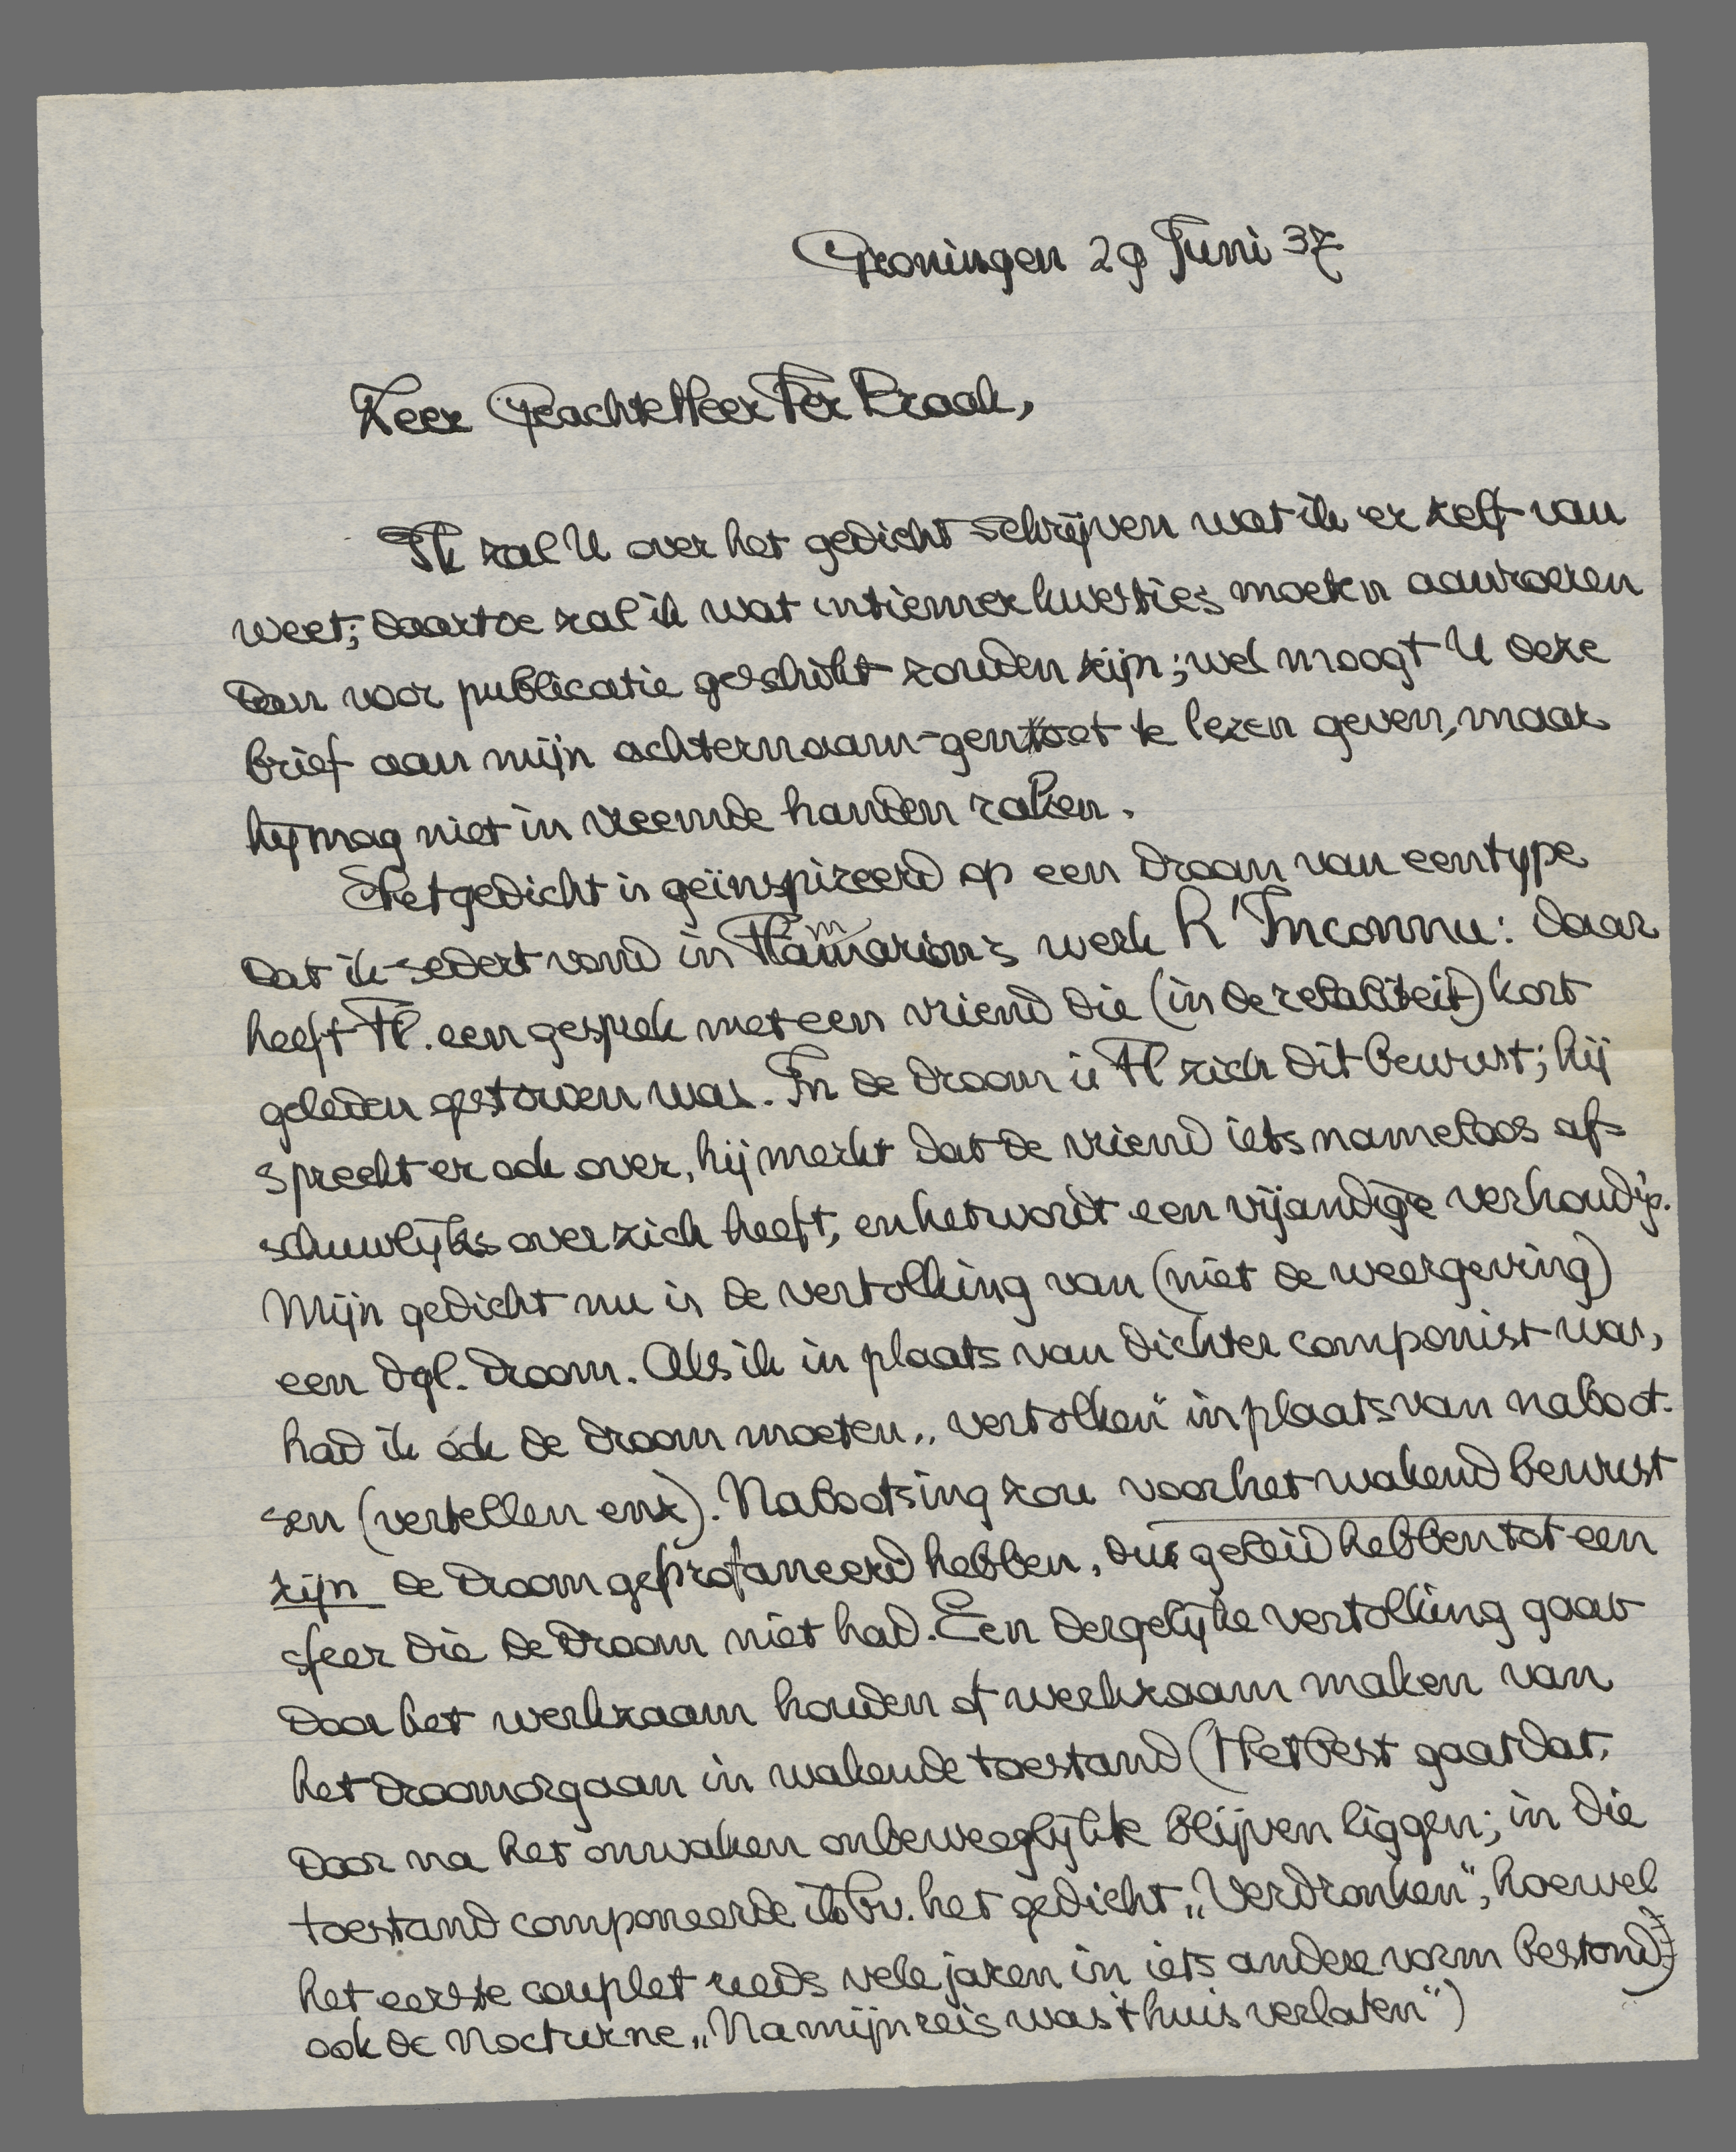 Groningen 29 Juni 37
Zeer Geachte Heer Ter Braak,
Ik zal U over het gedicht schrijven wat ik er zelf van
weet; daartoe zal ik wat intiemer kwesties moeten aanroeren
dan voor publicatie geschikt zouden zijn; wel moogt U deze
brief aan mijn achternaam-genoot te lezen geven, maar
hij mag niet in vreemde handen raken.
Het gedicht is geïnspireerd op een droom van een type
dat ik sedert vond in Flammarion's werk L'Inconnu: daar
heeft Fl. een gesprek met een vriend die (in de realiteit) kort
geleden gestorven was. In de droom is Fl zich dit bewust; hij
spreekt er ook over, hij merkt dat de vriend iets nameloos af-
schuwlijks over zich heeft, en het wordt een vijandige verhoudg.
Mijn gedicht nu is de vertolking van (niet de weergeving)
een dgl. droom. Als ik in plaats van dichter componist was,
had ik óók de droom moeten „vertolken" in plaats van naboot-
sen (vertellen enz). Nabootsing zou voor het wakend bewust
zijn de droom geprofaneerd hebben, dus geleid hebben tot een
sfeer die de droom niet had. Een dergelijke vertolking gaat
door het werkzaam houden of werkzaam maken van
het droomorgaan in wakende toestand (Het best gaat dat,
door na het onwaken onbeweeglijk te blijven liggen; in die
toestand componeerde ik bv. het gedicht „Verdronken", hoewel
het eerste couplet reeds vele jaren in iets andere vorm bestond;
ook de Nocturne „Na mijn reis was 't huis verlaten")